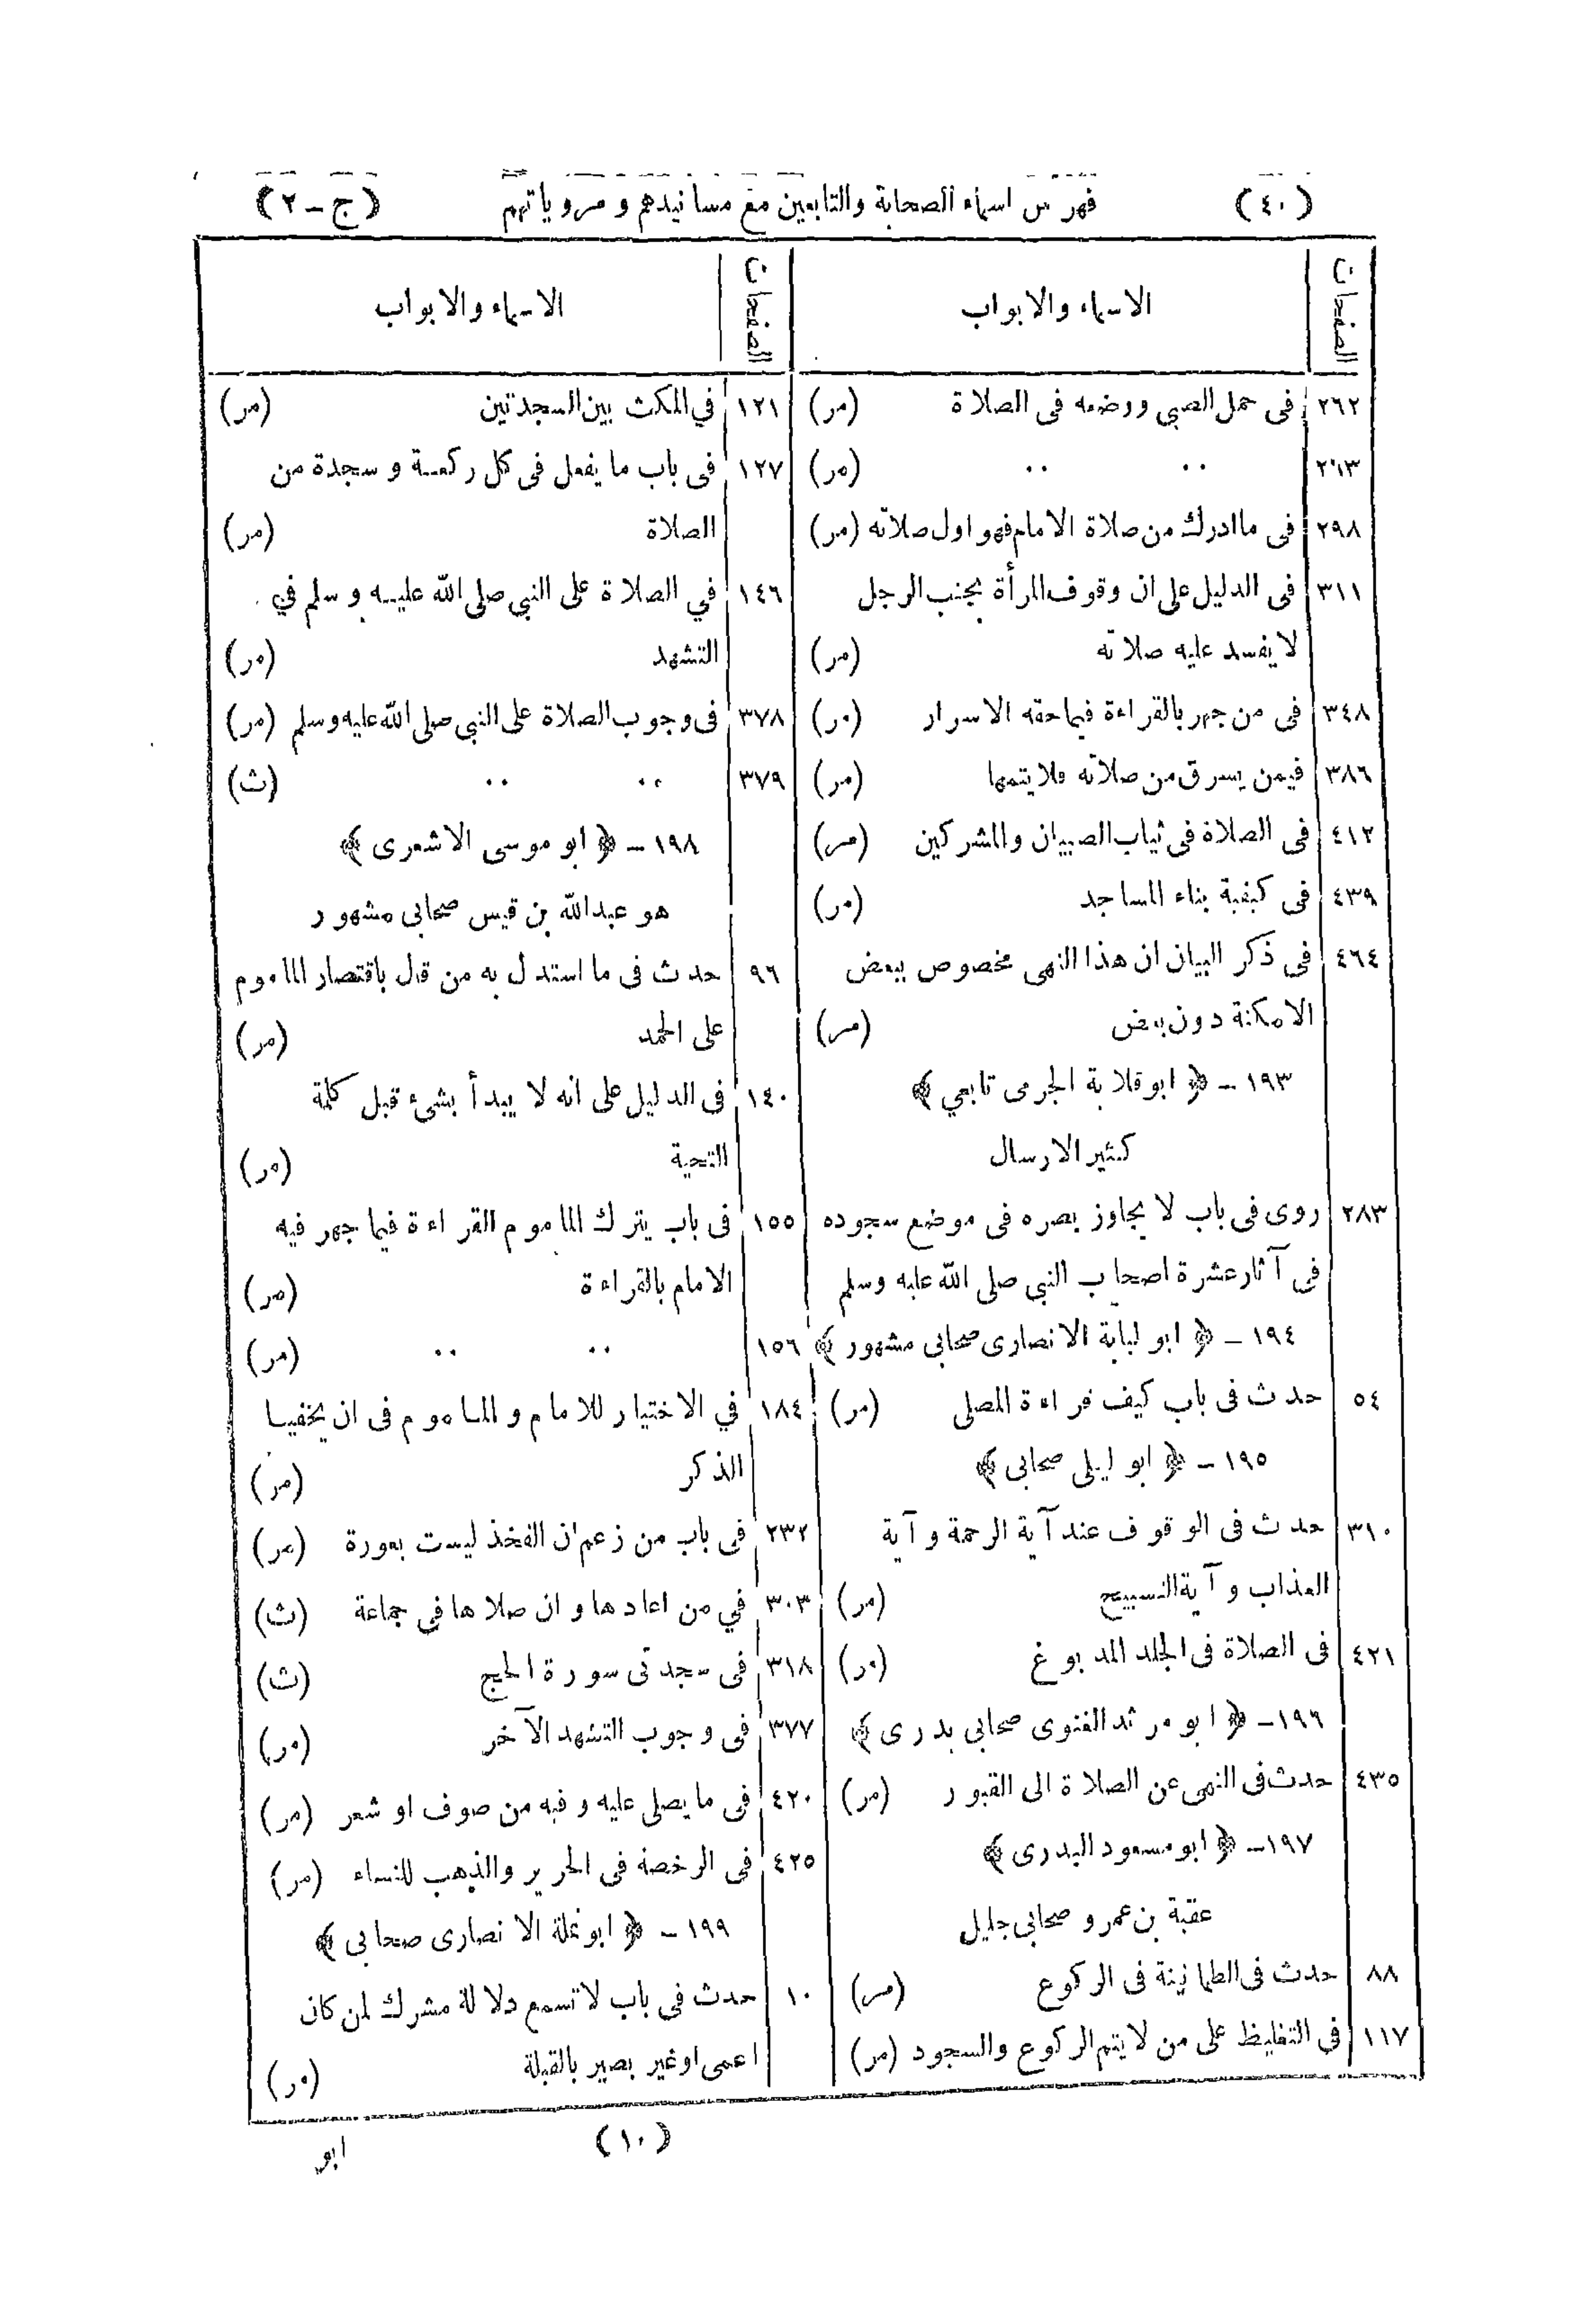 (٤٠) فهرس اسماء الصحابة والتابعين مع مسانيدهم ومروياتهم (ج-٢)
الصفحات الاسماء والابواب
٢٦٢ فى حمل الصبى ووضعه فى الصلاة (مر)
٢٦٣ ,, ,, (مر)
٢٩٨ فى ما ادرك من صلاة الامام فهو اول صلاته (مر)
٣١١ فى الدليل على ان وقوف المرأة بجنب الرجل
لا يفسد عليه صلاته (مر)
٣٤٨ فى من جهر بالقراءة فيما حقه الاسرار (مر)
٣٨٦ فيمن يسرق من صلاته فلا يتمها (مر)
٤١٢ فى الصلاة فى ثياب الصبيان والمشركين (مر)
٤٣٩ فى كيفية بناء المساجد (مر)
٤٦٤ فى ذكر البيان ان هذا النهى مخصوص ببعض
الامكنة دون بعض (مر)
١٩٣ - ﴿ ابو قلابة الجرمى تابعي ﴾
كثير الارسال
٢٨٣ روى فى باب لا يجاوز بصره فى موضع سجوده
فى آثار عشرة اصحاب النبى صلى الله عليه وسلم
١٩٤ - ﴿ ابو لبابة الانصارى صحابى مشهور ﴾
٥٤ حدث فى باب كيف قراءة المصلى (مر)
١٩٥ - ﴿ ابو ليلى صحابى ﴾
٣١٠ حدث فى الوقوف عند آية الرحمة و آية
العذاب و آية التسبيح (مر)
٤٢١ فى الصلاة فى الجلد المدبوغ (مر)
١٩٦ - ﴿ ابو مرثد الغنوى صحابى بدرى ﴾
٤٣٥ حدث فى النهى عن الصلاة الى القبور (مر)
١٩٧ - ﴿ ابو مسعود البدرى ﴾
عقبة بن عمرو صحابى جليل
٨٨ حدث فى الطمانينة فى الركوع (مر)
١١٧ فى التغليظ على من لا يتم الركوع والسجود (مر)
الصفحات الاسماء والابواب
١٢١ في المكث بين السجدتين (مر)
١٢٧ فى باب ما يفعل فى كل ركعة و سجدة من
الصلاة (مر)
١٤٦ في الصلاة على النبي صلى الله عليه و سلم في
التشهد (مر)
٣٧٨ فى وجوب الصلاة على النبى صلى الله عليه وسلم (مر)
٣٧٩ ,, ,, (ث)
١٩٨ - ﴿ ابو موسى الاشعرى ﴾
هو عبدالله بن قيس صحابى مشهور
٩٦ حدث فى ما استدل به من قال باقتصار الماموم
على الحمد (مر)
١٤٠ فى الدليل على انه لا يبدأ بشئ قبل كلمة
التحية (مر)
١٥٥ فى باب يترك الماموم القراءة فيما جهر فيه
الامام بالقراءة (مر)
١٥٦ ,, ,, (مر)
١٨٤ في الاختيار للامام و الماموم فى ان يخفيا
الذكر (مر)
٢٣٢ فى باب من زعم ان الفخذ ليست بعورة (مر)
٣٠٣ في من اعادها و ان صلاها فى جماعة (ث)
٣١٨ فى سجدتى سورة الحج (ث)
٣٧٧ فى وجوب التشهد الآخر (مر)
٤٢٠ فى ما يصلى عليه و فيه من صوف او شعر (مر)
٤٢٥ فى الرخصة فى الحرير والذهب للنساء (مر)
١٩٩ - ﴿ ابو نملة الانصارى صحابى ﴾
١٠ حدث فى باب لا تسمع دلالة مشرك لمن كان
اعمى او غير بصير بالقبلة (مر)
(١٠) ابو